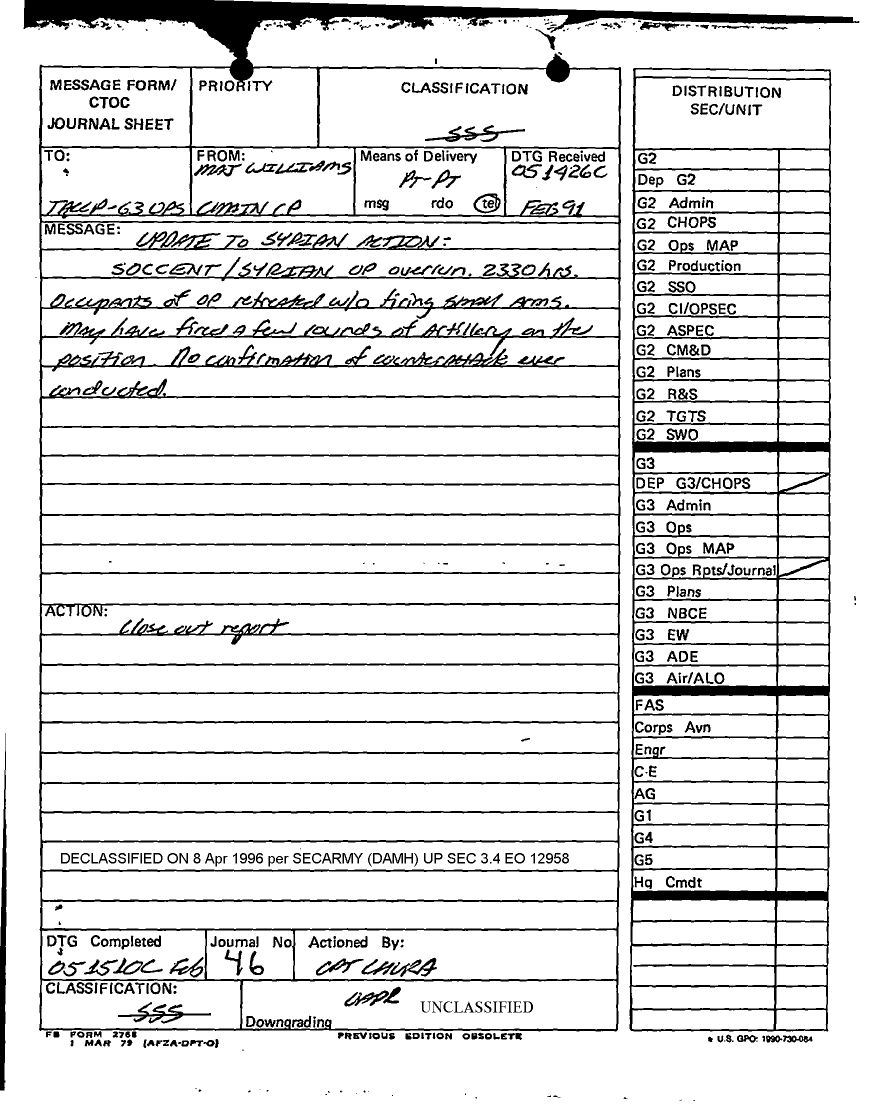 MESSAGE FORM/
CTOC
JOURNAL SHEET
PRIORITY
CLASSIFICATION
SSS
TO:
TACCP-G3 OPS
FROM:
MAJ WILLIAMS
CMAIN CP
Means of Delivery
PT-PT
msg rdo tel
DTG Received
051426C
FEB 91
MESSAGE:
UPDATE TO SYRIAN ACTION:
SOCCENT/SYRIAN OP overrun. 2330 hrs.
Occupants of OP retreated w/o firing small arms.
May have fired a few rounds of Artillery on the
position. No confirmation of counterattack ever
conducted.
ACTION:
Close out report
DECLASSIFIED ON 8 Apr 1996 per SECARMY (DAMH) UP SEC 3.4 EO 12958
DTG Completed
051510C Feb
Journal No
46
Actioned By:
CPT
CLASSIFICATION:
SSS
OADR
UNCLASSIFIED
Downgrading
FB FORM 2768
1 MAR 79 (AFZA-DPT-O)
PREVIOUS EDITION OBSOLETE
DISTRIBUTION
SEC/UNIT
G2
Dep G2
G2 Admin
G2 CHOPS
G2 Ops MAP
G2 Production
G2 SSO
G2 CI/OPSEC
G2 ASPEC
G2 CM&D
G2 Plans
G2 R&S
G2 TGTS
G2 SWO
G3
DEP G3/CHOPS
G3 Admin
G3 Ops
G3 Ops MAP
G3 Ops Rpts/Journal
G3 Plans
G3 NBCE
G3 EW
G3 ADE
G3 Air/ALO
FAS
Corps Avn
Engr
C-E
AG
G1
G4
G5
Hq Cmdt
* U.S. GPO: 1990-730-084